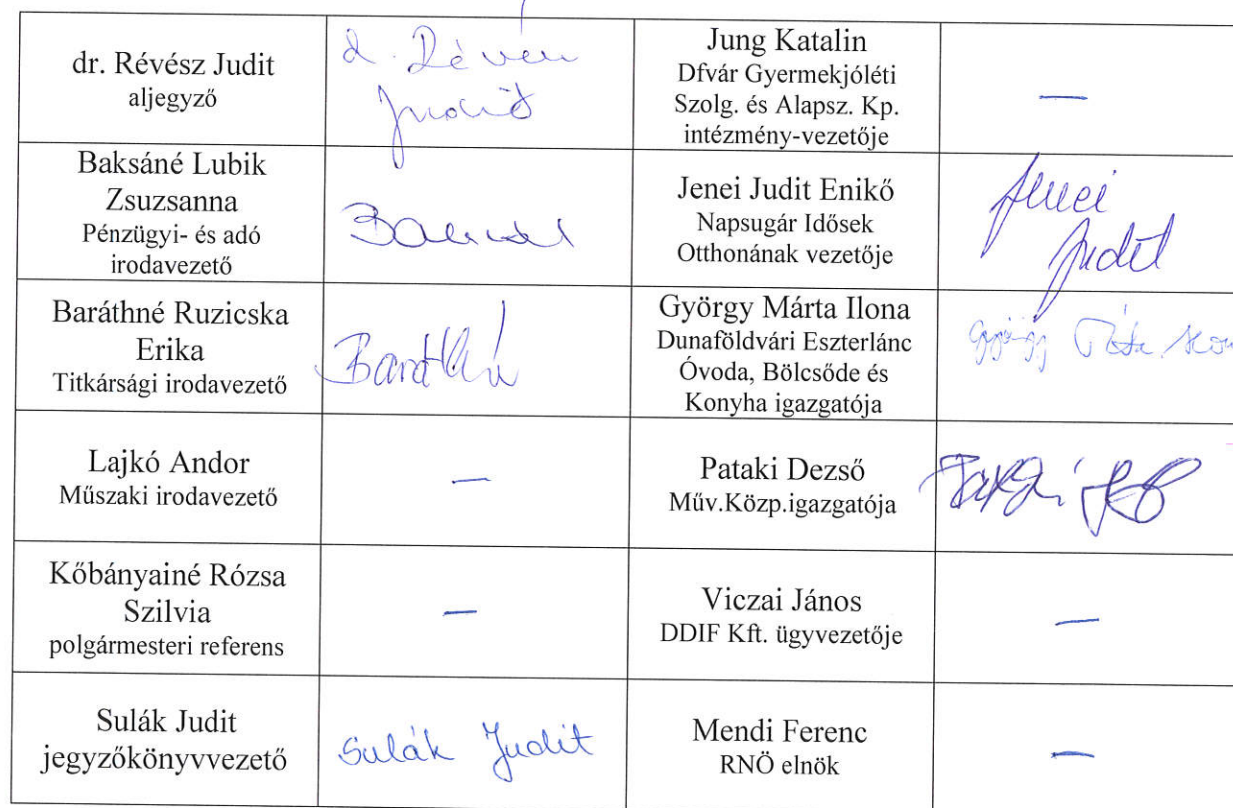 dr. Révész Judit
aljegyző
d. Révész
Judit
Jung Katalin
Dfvár Gyermekjóléti
Szolg. és Alapsz. Kp.
intézmény-vezetője
—
Baksáné Lubik
Zsuzsanna
Pénzügyi- és adó
irodavezető
Jenei Judit Enikő
Napsugár Idősek
Otthonának vezetője
Jenei
Judit
Baráthné Ruzicska
Erika
Titkársági irodavezető
Baráthné
György Márta Ilona
Dunaföldvári Eszterlánc
Óvoda, Bölcsőde és
Konyha igazgatója
György Márta
Lajkó Andor
Műszaki irodavezető
—
Pataki Dezső
Műv.Közp.igazgatója
Kőbányainé Rózsa
Szilvia
polgármesteri referens
—
Viczai János
DDIF Kft. ügyvezetője
—
Sulák Judit
jegyzőkönyvvezető
Sulák Judit
Mendi Ferenc
RNÖ elnök
—